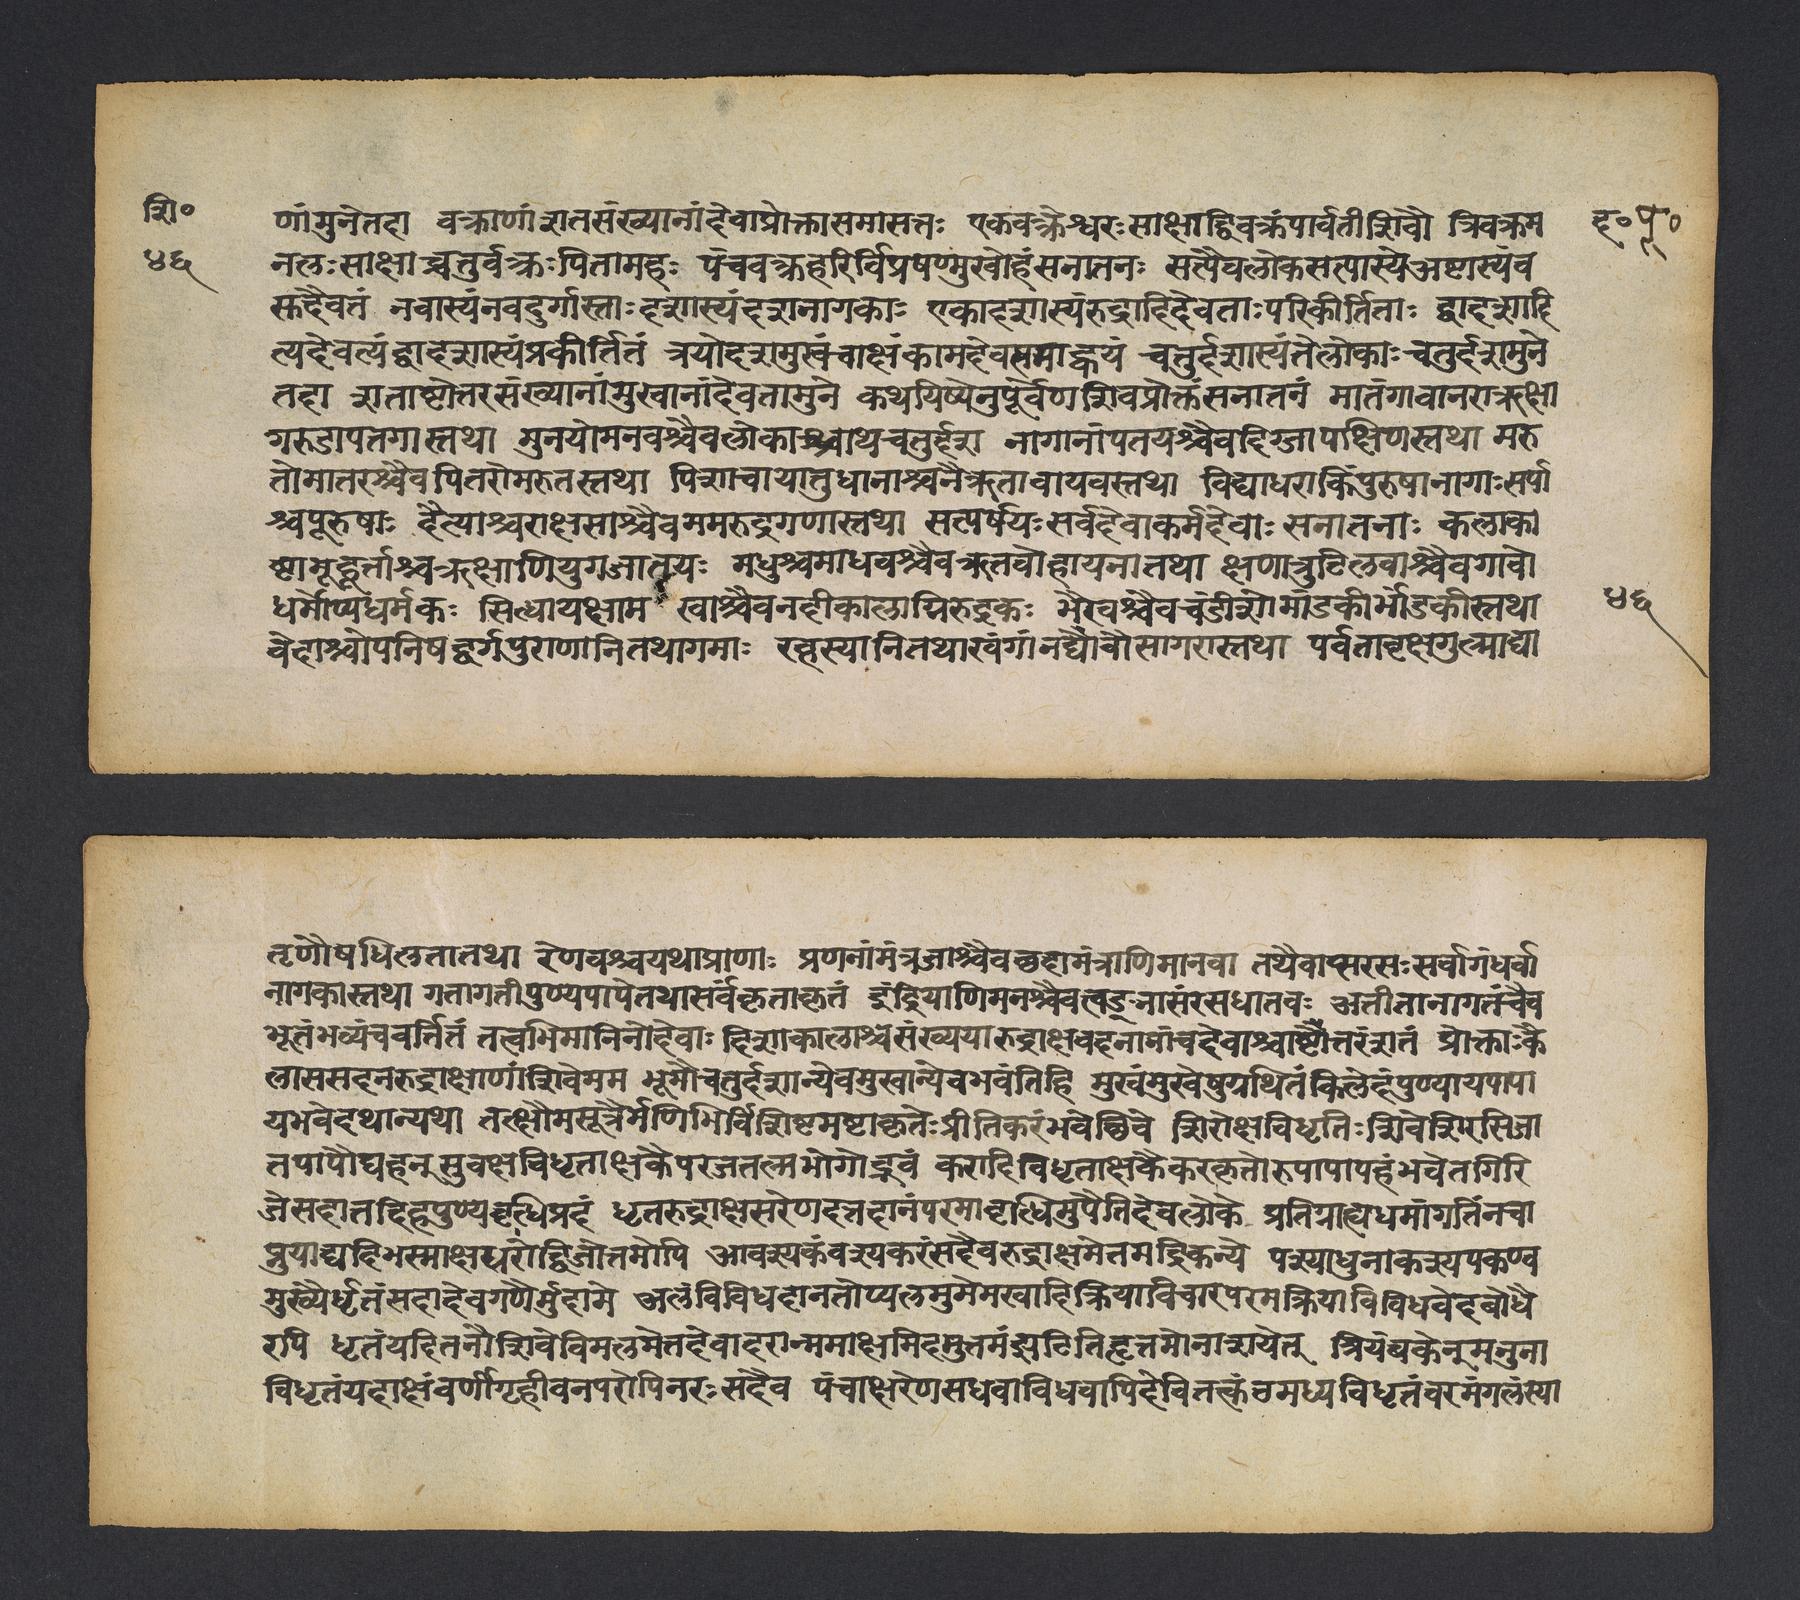 शि॰
४६
ह॰ पु॰
णांमुनेतदा वक्त्राणांशतसंख्यानांदेवाप्रोक्तासमासतः एकवक्त्रेश्वरःसाक्षाद्द्विवक्त्रंपार्वतीशिवौ त्रिवक्त्रम
नलःसाक्षाच्चतुर्वक्त्रःपितामहः पंचवक्त्रहरिर्विप्रषण्मुखोहंसनातनः सप्तैवलोकसप्तास्ये अष्टास्यंव
सुदैवतं नवास्यंनवदुर्गास्ताः दशास्यंदशनागकाः एकादशास्यंरुद्राहिदेवताःपरिकीर्तिताः द्वादशादि
त्यदेवत्यंद्वादशास्यंप्रकीर्तितं त्रयोदशमुखंचाक्षंकामदेवसमाह्वयं चतुर्दशास्यंतेलोकाःचतुर्दशमुने
तदा शताष्टोत्तरसंख्यानांमुखानांदेवतामुने कथयिष्येनुपूर्वेणशिवप्रोक्तंसनातनं मातंगावानराऋक्षा
गरुडापतगास्तथा मुनयोमनवश्चैवलोकाश्चाथचतुर्दश नागानांपतयश्चैवदिग्जापक्षिणस्तथा मरु
तोमातरश्चैवपितरोमरुतस्तथा पिशाचायातुधानाश्चनैऋतावायवस्तथा विद्याधराकिंपुरुषानागाःसर्पा
श्चपूरुषाः दैत्याश्चराक्षसाश्चैवममरुद्रगणास्तथा सप्तर्षयःसर्वदेवाकर्मदेवाःसनातनाः कलाका
ष्टामूहूर्ताश्चऋक्षाणियुगजातयः मधुश्चमाधवश्चैवऋतवोहायनातथा क्षणात्रुटिलवाश्चैवगावो
धर्मोप्यधर्मकः सित्थायक्षाम खाश्चैवनदीकालाग्निरुद्रकः भैरवश्चैवचंडीशोमांडकीर्भांडकीस्तथा
वेदाश्चोपनिषद्वर्गपुराणानितथागमाः रहस्यानितथाखंगांनद्यौवौसागरास्तथा पर्वतावृक्षगुल्माद्या
४६
तृणौषधिलतातथा रेणवश्चयथाप्राणाः प्रणनांमंत्रजाश्चैवछदामंत्राणिमानवा तथैवाप्सरसःसर्वागंधर्वा
नागकास्तथा गतागतीपुण्यपापेतथासर्वकृताकृतं इंद्रियाणिमनश्चैवत्वङ्नासंरसधातवः अतीतानागतंचैव
भूतंभव्यंचवर्तितं तत्वभिमानिनोदेवाः दिशाकालाश्चसंख्ययारुद्राक्षवदनानांचदेवाश्चाष्टोत्तरंशतं प्रोक्ताःकै
लाससदनरुद्राक्षाणांशिवेमम भूमौचतुर्दशान्येवमुखान्येवभवंतिहि मुखंमुखेषुग्रथितंकिलेहंपुण्यायपापा
यभवेदथान्यथा तत्क्षौमसूत्रैर्मणिभिर्विशिष्टमष्टाकृतेःप्रीतिकरंभवेच्छिवे शिरोक्षविधृतिःशिवेशिरसिजा
तपापौघहनुसुवक्षविधृताक्षकैपरजतल्मभोगोद्भवं करादिविधृताक्षकैकरकृतोरुपापापहंभवेतगिरि
जेसदातद्दिहपुण्यवृत्धिप्रदं धृतरुद्राक्षसरेणदत्तदानंपरमावृत्धिमुपैतिदेवलोके प्रतिग्राह्येधमांगतिंनचा
प्नुयाद्यदिभस्माक्षधरोद्विजोत्तमोपि आवश्यकंवश्यकरंसदैवरुद्राक्षमेतमद्रिकन्ये पश्याधुनाकश्यपकण्व
मुख्यैर्धृतंसदादेवगणैर्मुदामे अलंविविधदानतोप्यलमुमेमखादिक्रियाविचारपरमक्रियाविविधवेदबोधै
रपि धृतंयदितनौशिवेविमलमेतदेवादरान्ममाक्षमिहमुत्तमंझटितिहृत्तमोनाशयेत् त्रियंबकेनुमनुना
विधृतंयदाक्षंवर्णीगृहीवनपरोपिनरःसदैव पंचाक्षरेणसधवाविधवापिदेवितत्कंठमध्यविधृतंवरमंगलंस्या